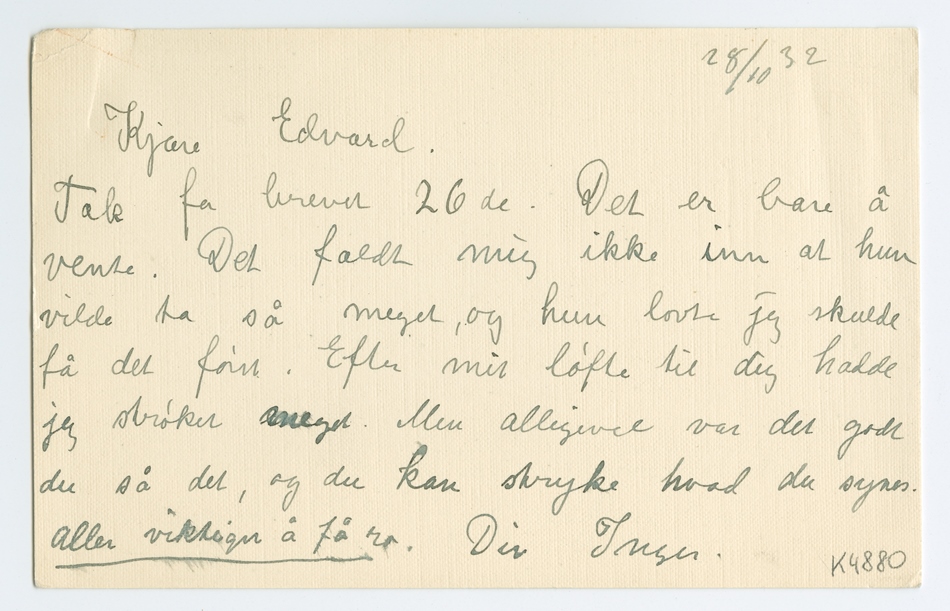 28/10 32
Kjære Edvard.
Tak for brevet 26de. Det er bare å
vente. Det faldt mig ikke inn at hun
vilde ta så meget, og hun lovte jeg skulde
få det først. Efter mit løfte til dig hadde
jeg strøket meget. Men alligevel var det godt
du så det, og du kan stryke hvad du synes.
aller viktigst å få ro. Din Inger.
K4880